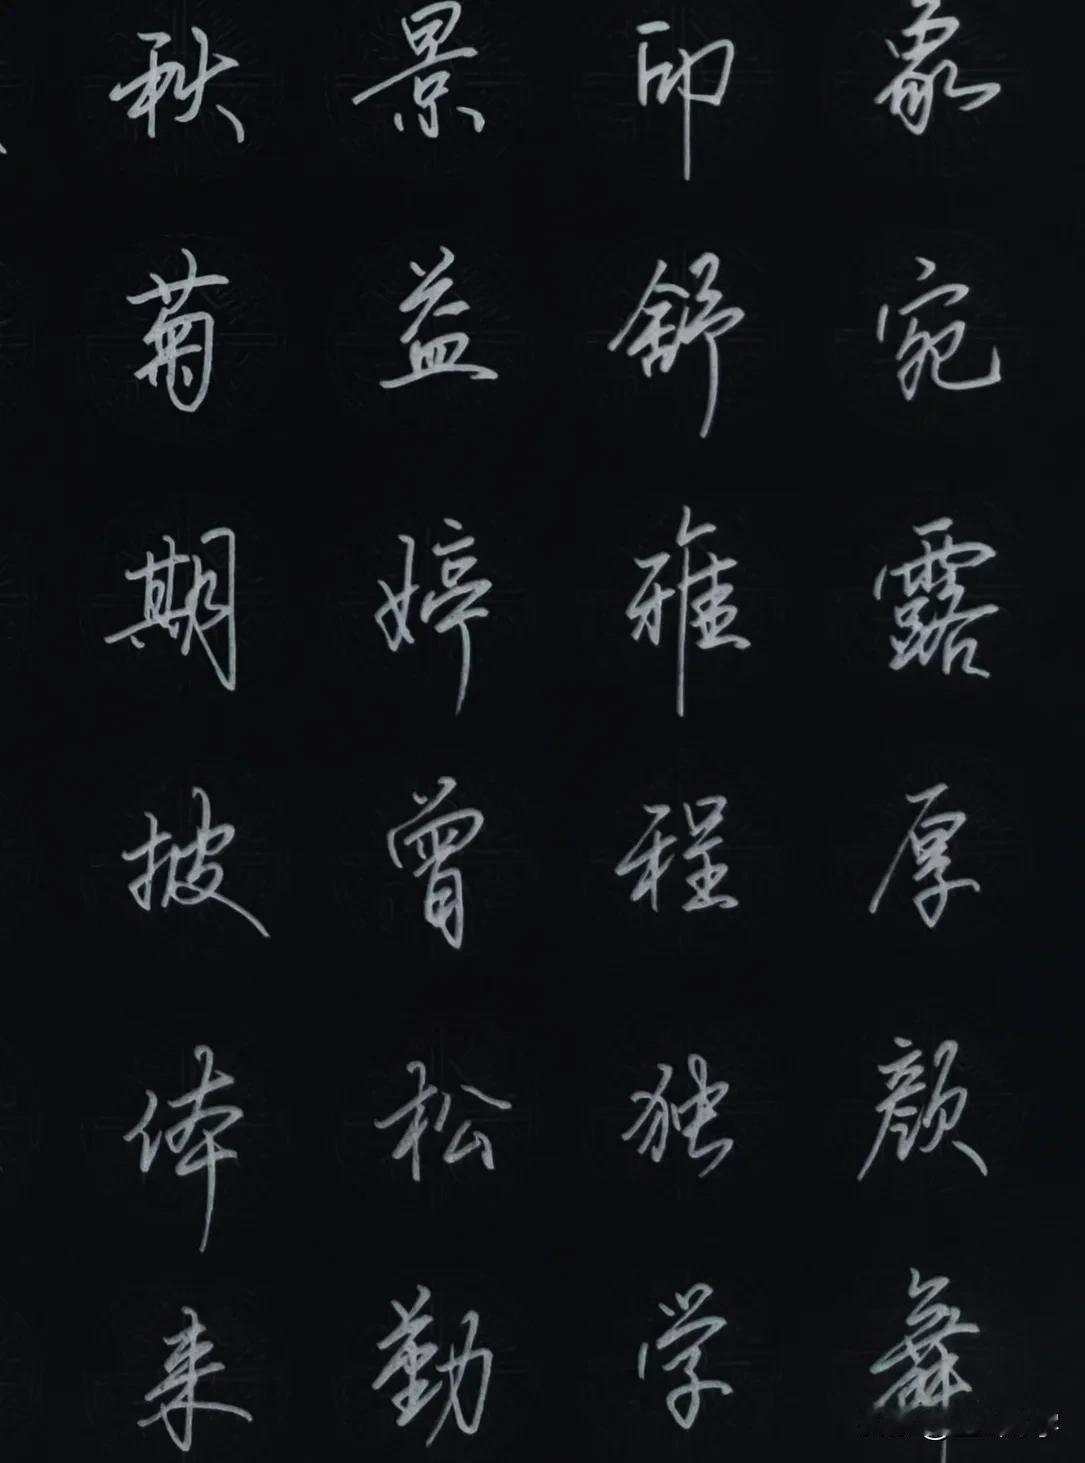 秋景印象
菊益舒宛
期婷雅露
披曾程厚
体松独颜
来勤学舞